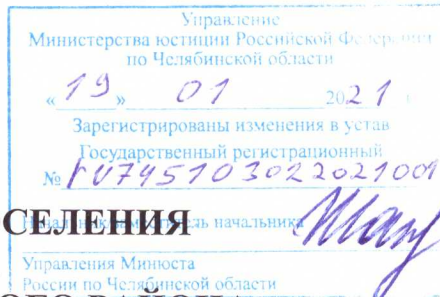 Управление
Министерства юстиции Российской Федерации
по Челябинской области
«19» 01 2021 г.
Зарегистрированы изменения в устав
Государственный регистрационный
№ RU745103022021001
СЕЛЕНИЯ
заместитель начальника
Управления Минюста
России по Челябинской области
ОГО РАЙОНА